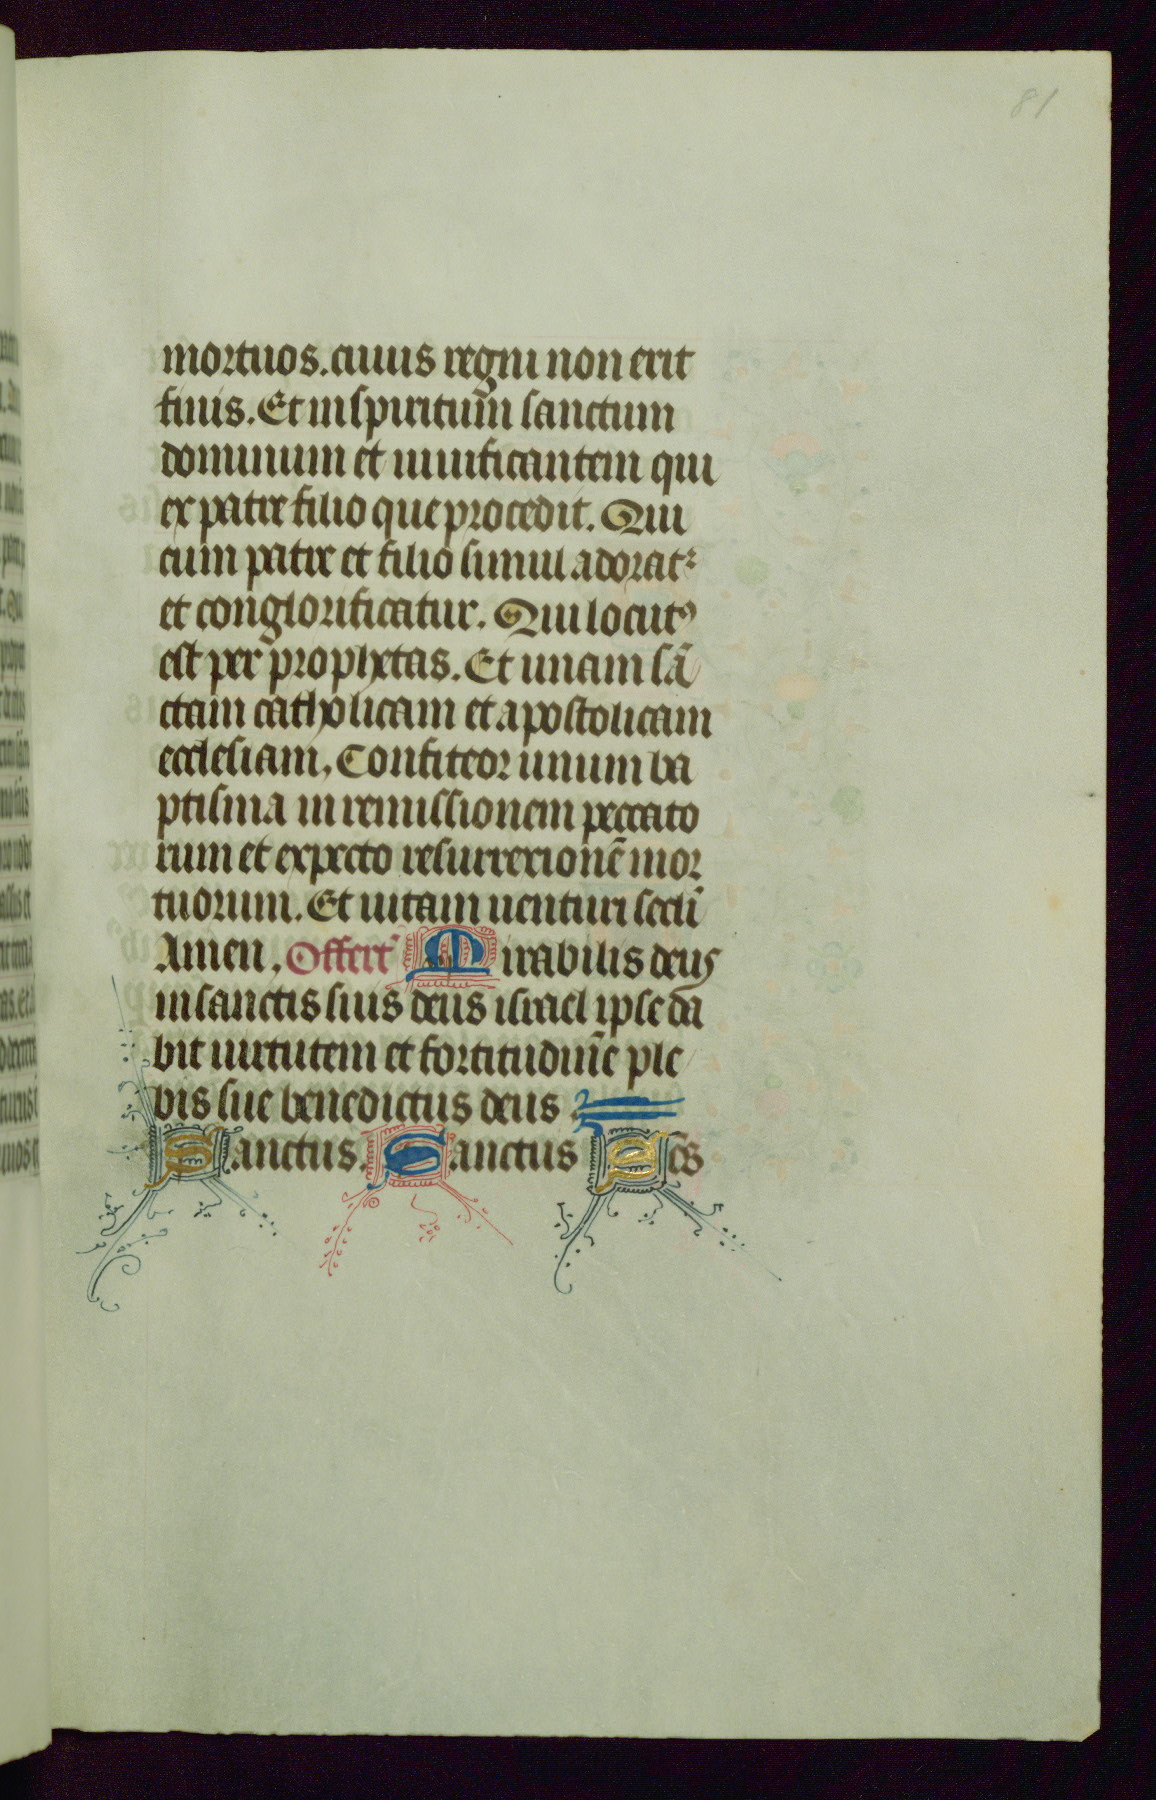 81
mortuos. cuius regni non erit
finis. Et in spiritum̄ sanctum
dominum et uiuificantem qui
ex patre filio que procedit. Qui
cum patre et filio simul adorat᷑
et conglorificatur. Qui locutꝰ
est per prophetas. Et unam sā
ctam catholicam et apostolicam
ecclesiam. Confiteor unum ba
ptisma in remissionem peccato
rum et expecto resurrexionē mor
tuorum. Et uitam uenturi secli̅
Amen. Offert̅ Mirabilis deus
in sanctis suis deus israel ipse da
bit uirtutem et fortitudinē ple
bis sue benedictus deus
Sanctus. Sanctus Scs